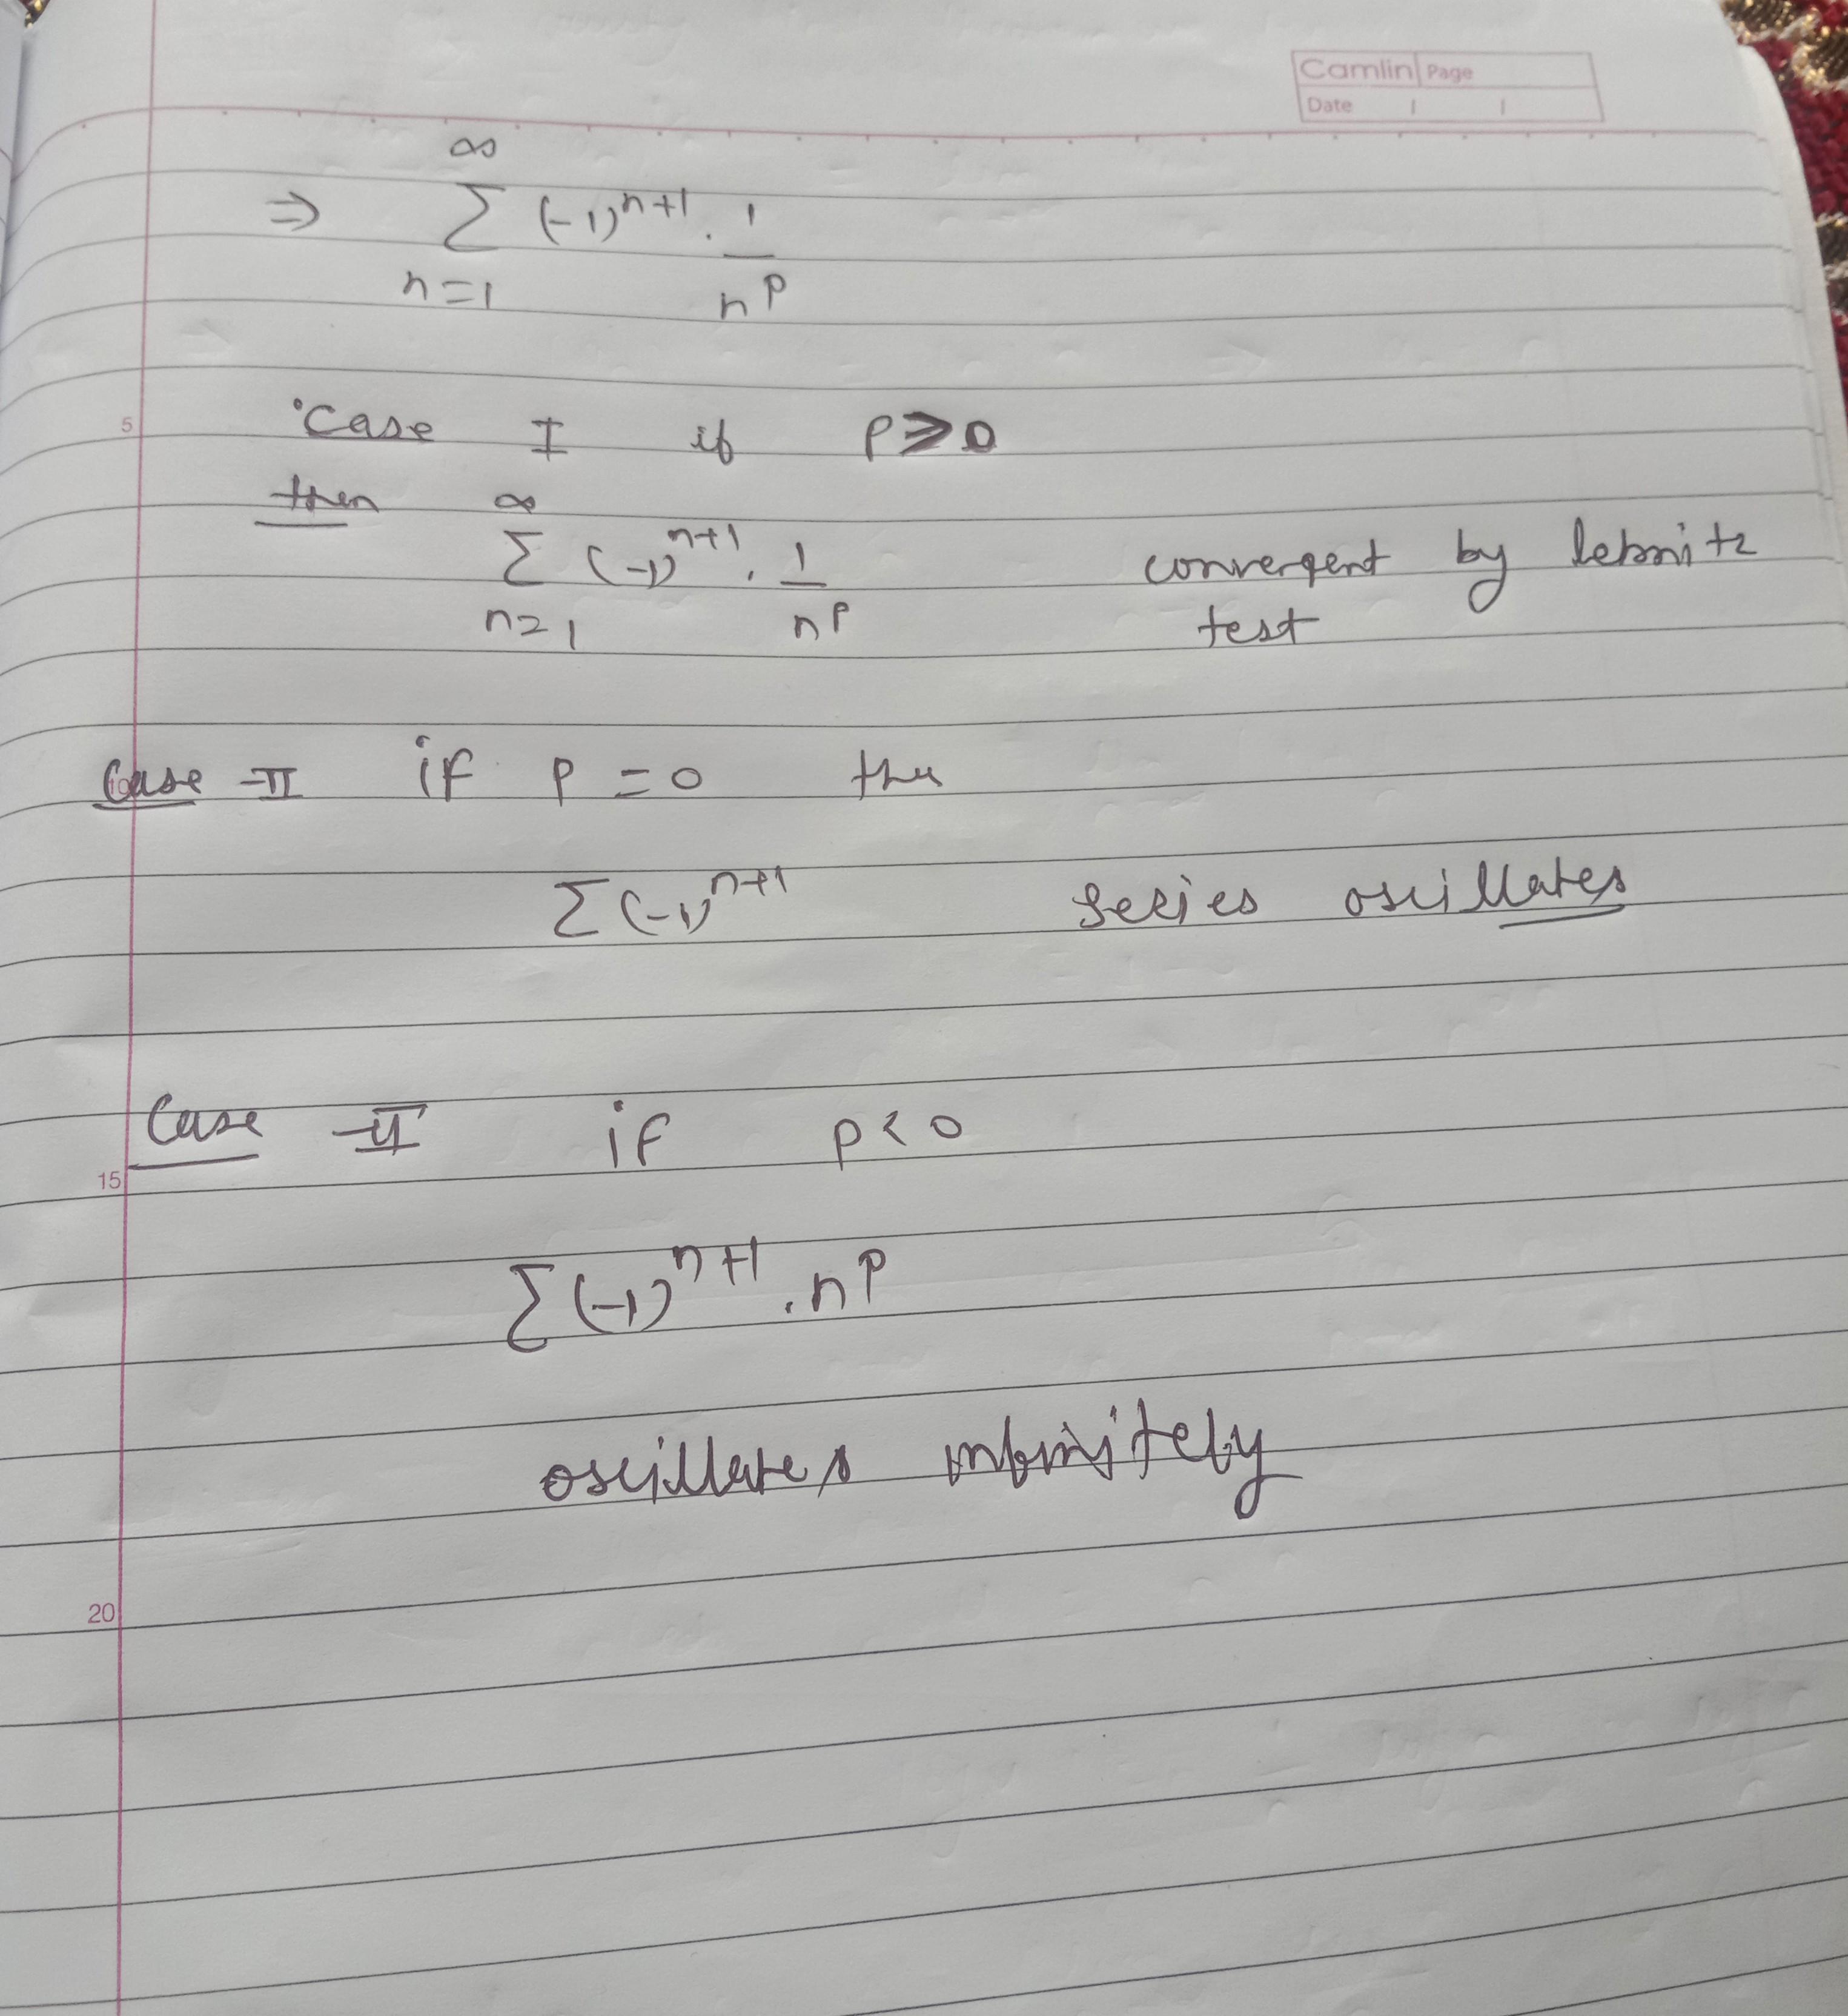 Camlin Page
Date / /
⇒ ∞ Σ n=1 (-1)^{n+1} . 1/n^p
5
Case I if p ⩾ 0
then ∞ Σ n=1 (-1)^{n+1} . 1/n^p convergent by lebnitz
test
Case -II if p = 0 the
Σ(-1)^{n+1} Series oscillates
Case -II if p < 0
15
Σ(-1)^{n+1} . n^p
oscillates infinitely
20